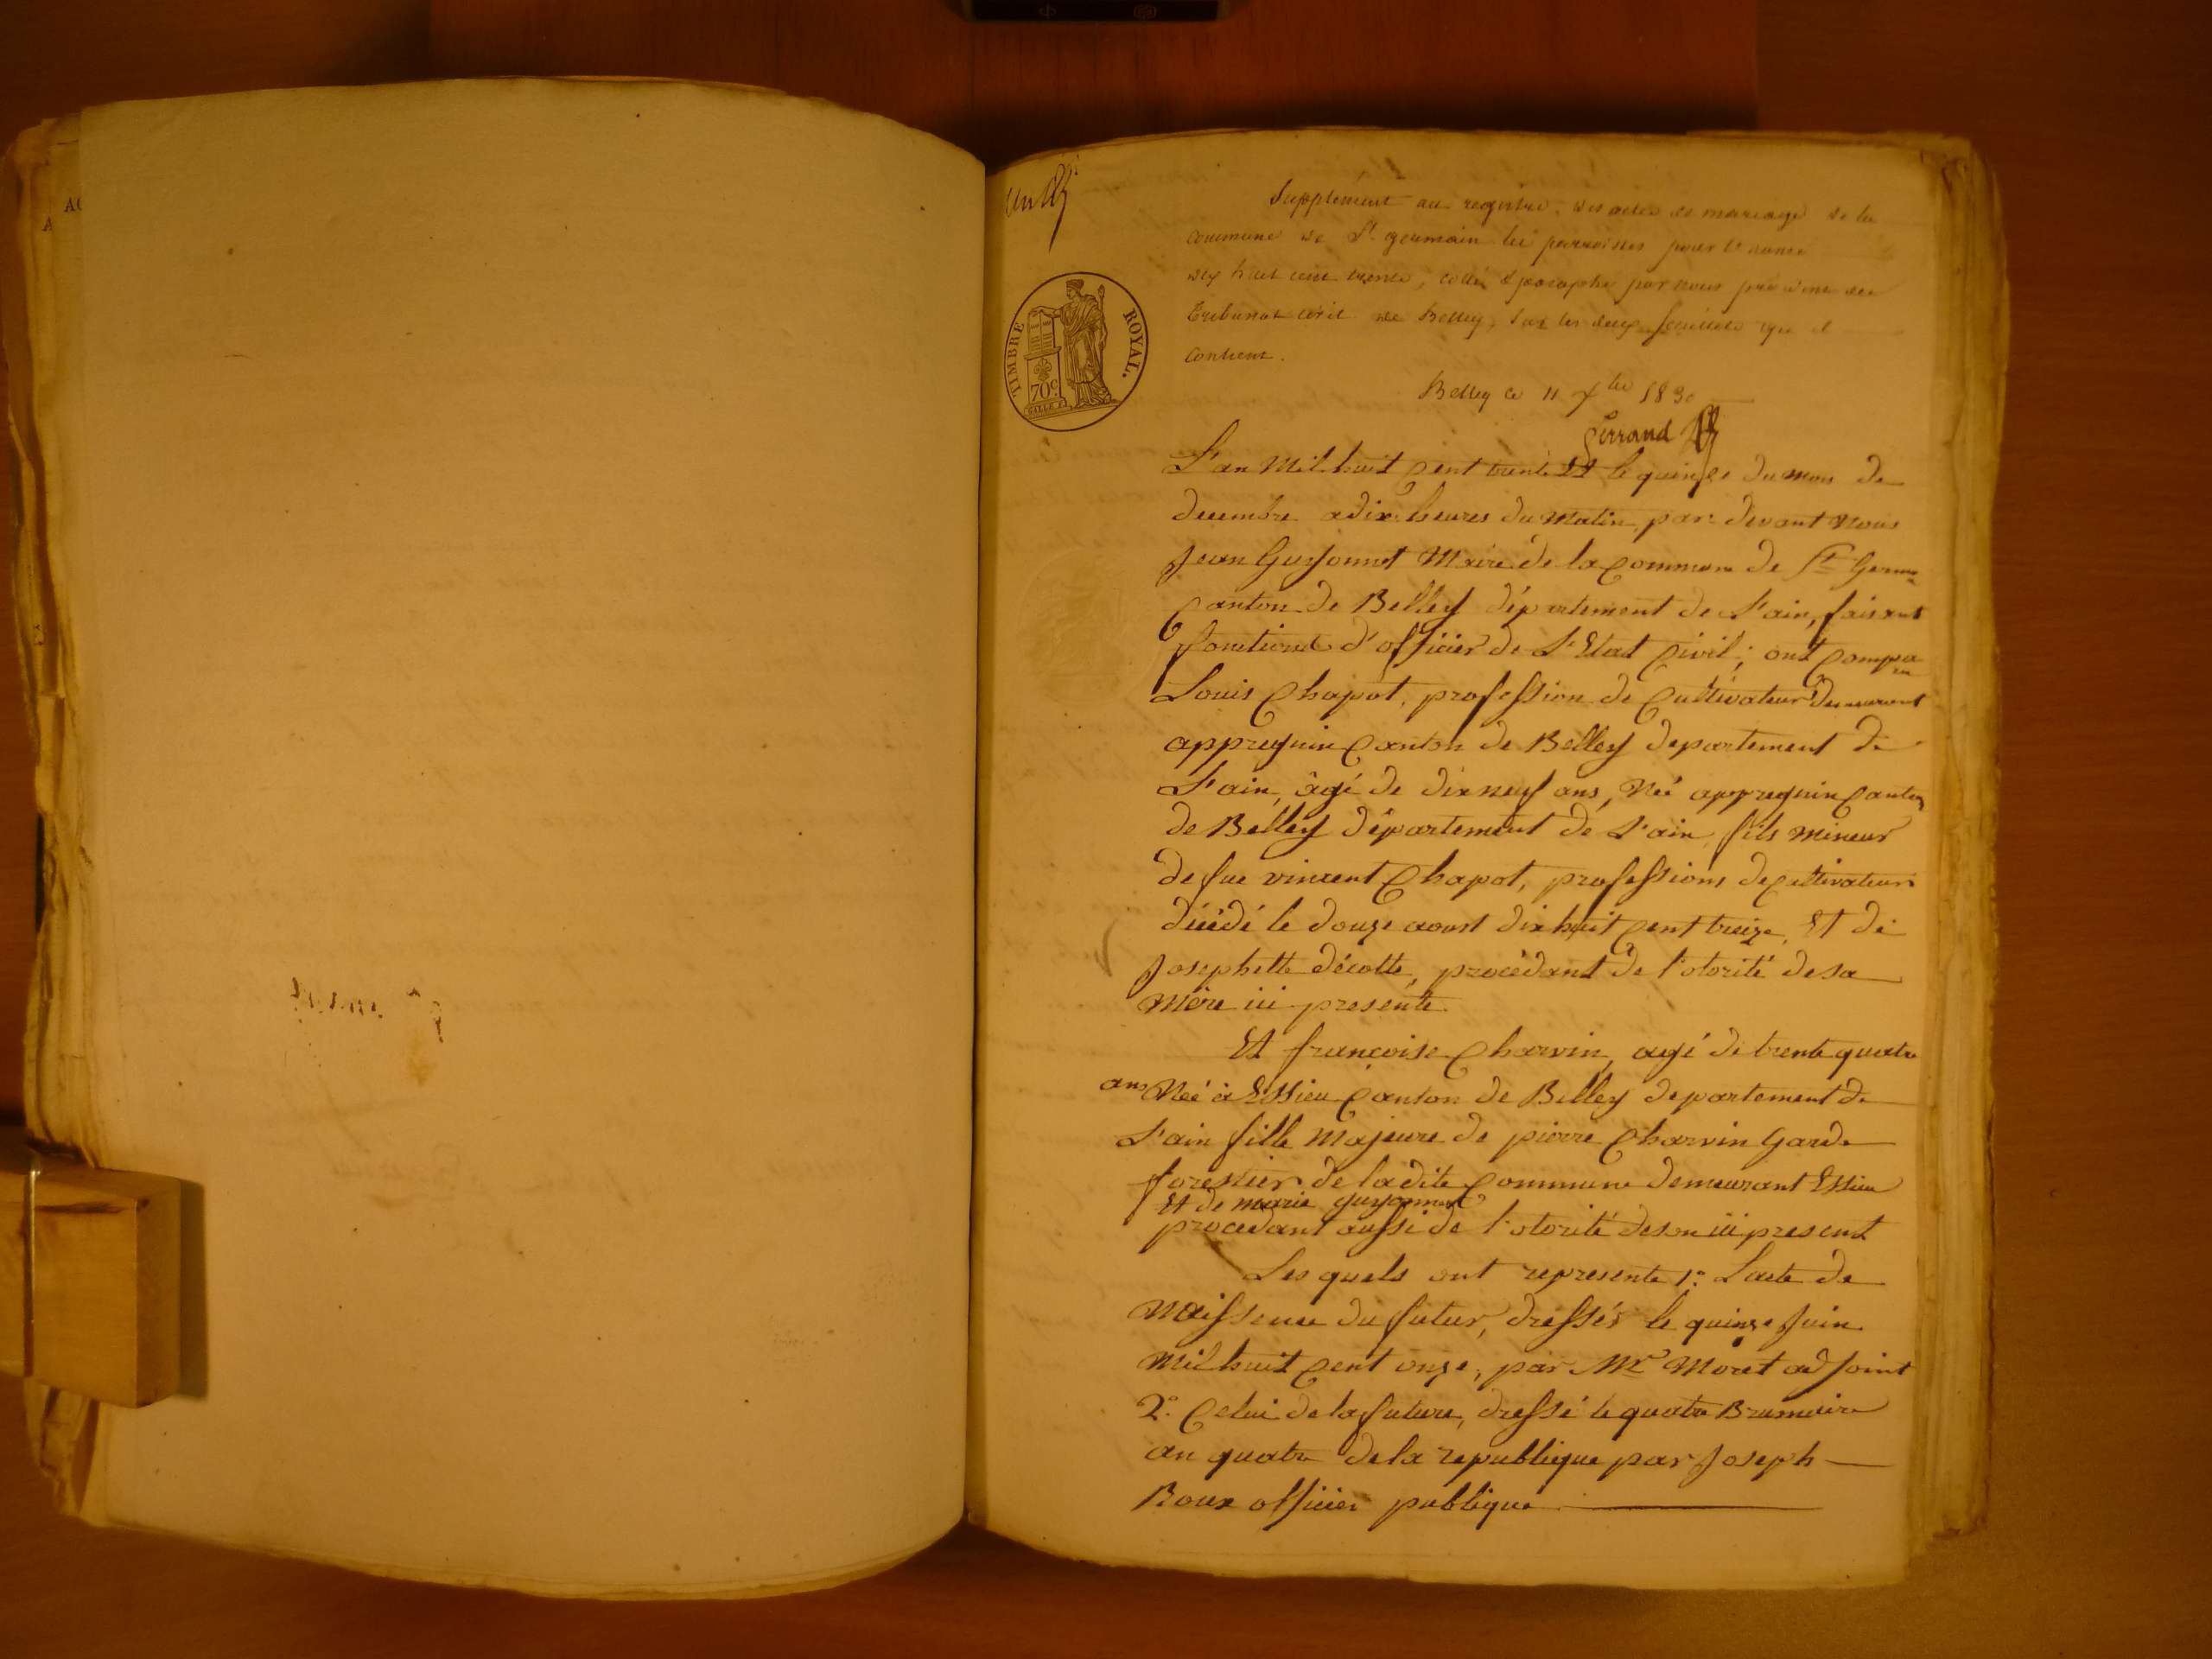 Supplement au registre des actes de mariage de la
commune de St. germain les parroisses pour l'année
dix huit cent trente, cotté & paraphé par nous président du
tribunal civil de Belley, sur les deux feuillets qu'il
contient.
Belley ce 11 Xbre 1830
Gerrand
TIMBRE ROYAL.
70c
L'an Mil huit Cent trente Et le quinze du mois de
decembre a dix heures du matin, par devant Nous
Jean Guyonnet Maire de la Commune de St Germn
Canton de Belley département de L'ain, faisant
fonctions d'officier de L'Etat Civil; ont Comparu
Louis Chapot, profession de Cultivateur demeurant
appregnin Canton de Belley departement de
L'ain, âgé de dix neuf ans, Née appregnin Canton
de Belley département de L'ain, fils mineur
de fue vincent Chapot, professions de Cultivateur
décédé le douze aoust dix huit Cent treize, Et de
Josephette décotte, procèdant de l'otorité de sa
Mère ici presente
Et françoise Charvin, agé de trente quatre
ans Née à Essieu Canton de Belley departement de
L'ain fille Majeure de pierre Charvin Garde
forestier de ladite Commune demeurant Essieu
Et de marie guyonnet
procedant aussi de l'otorité de son ici present
Les quels ont represente 1.° L'acte de
Naissence du futur, dressés le quinze Juin
Mil huit Cent onze, par Mr Moret adjoint
2.° Celui de la future, dressé le quatre Brumaire
an quatre de la republieque par Joseph
Roux officier publique